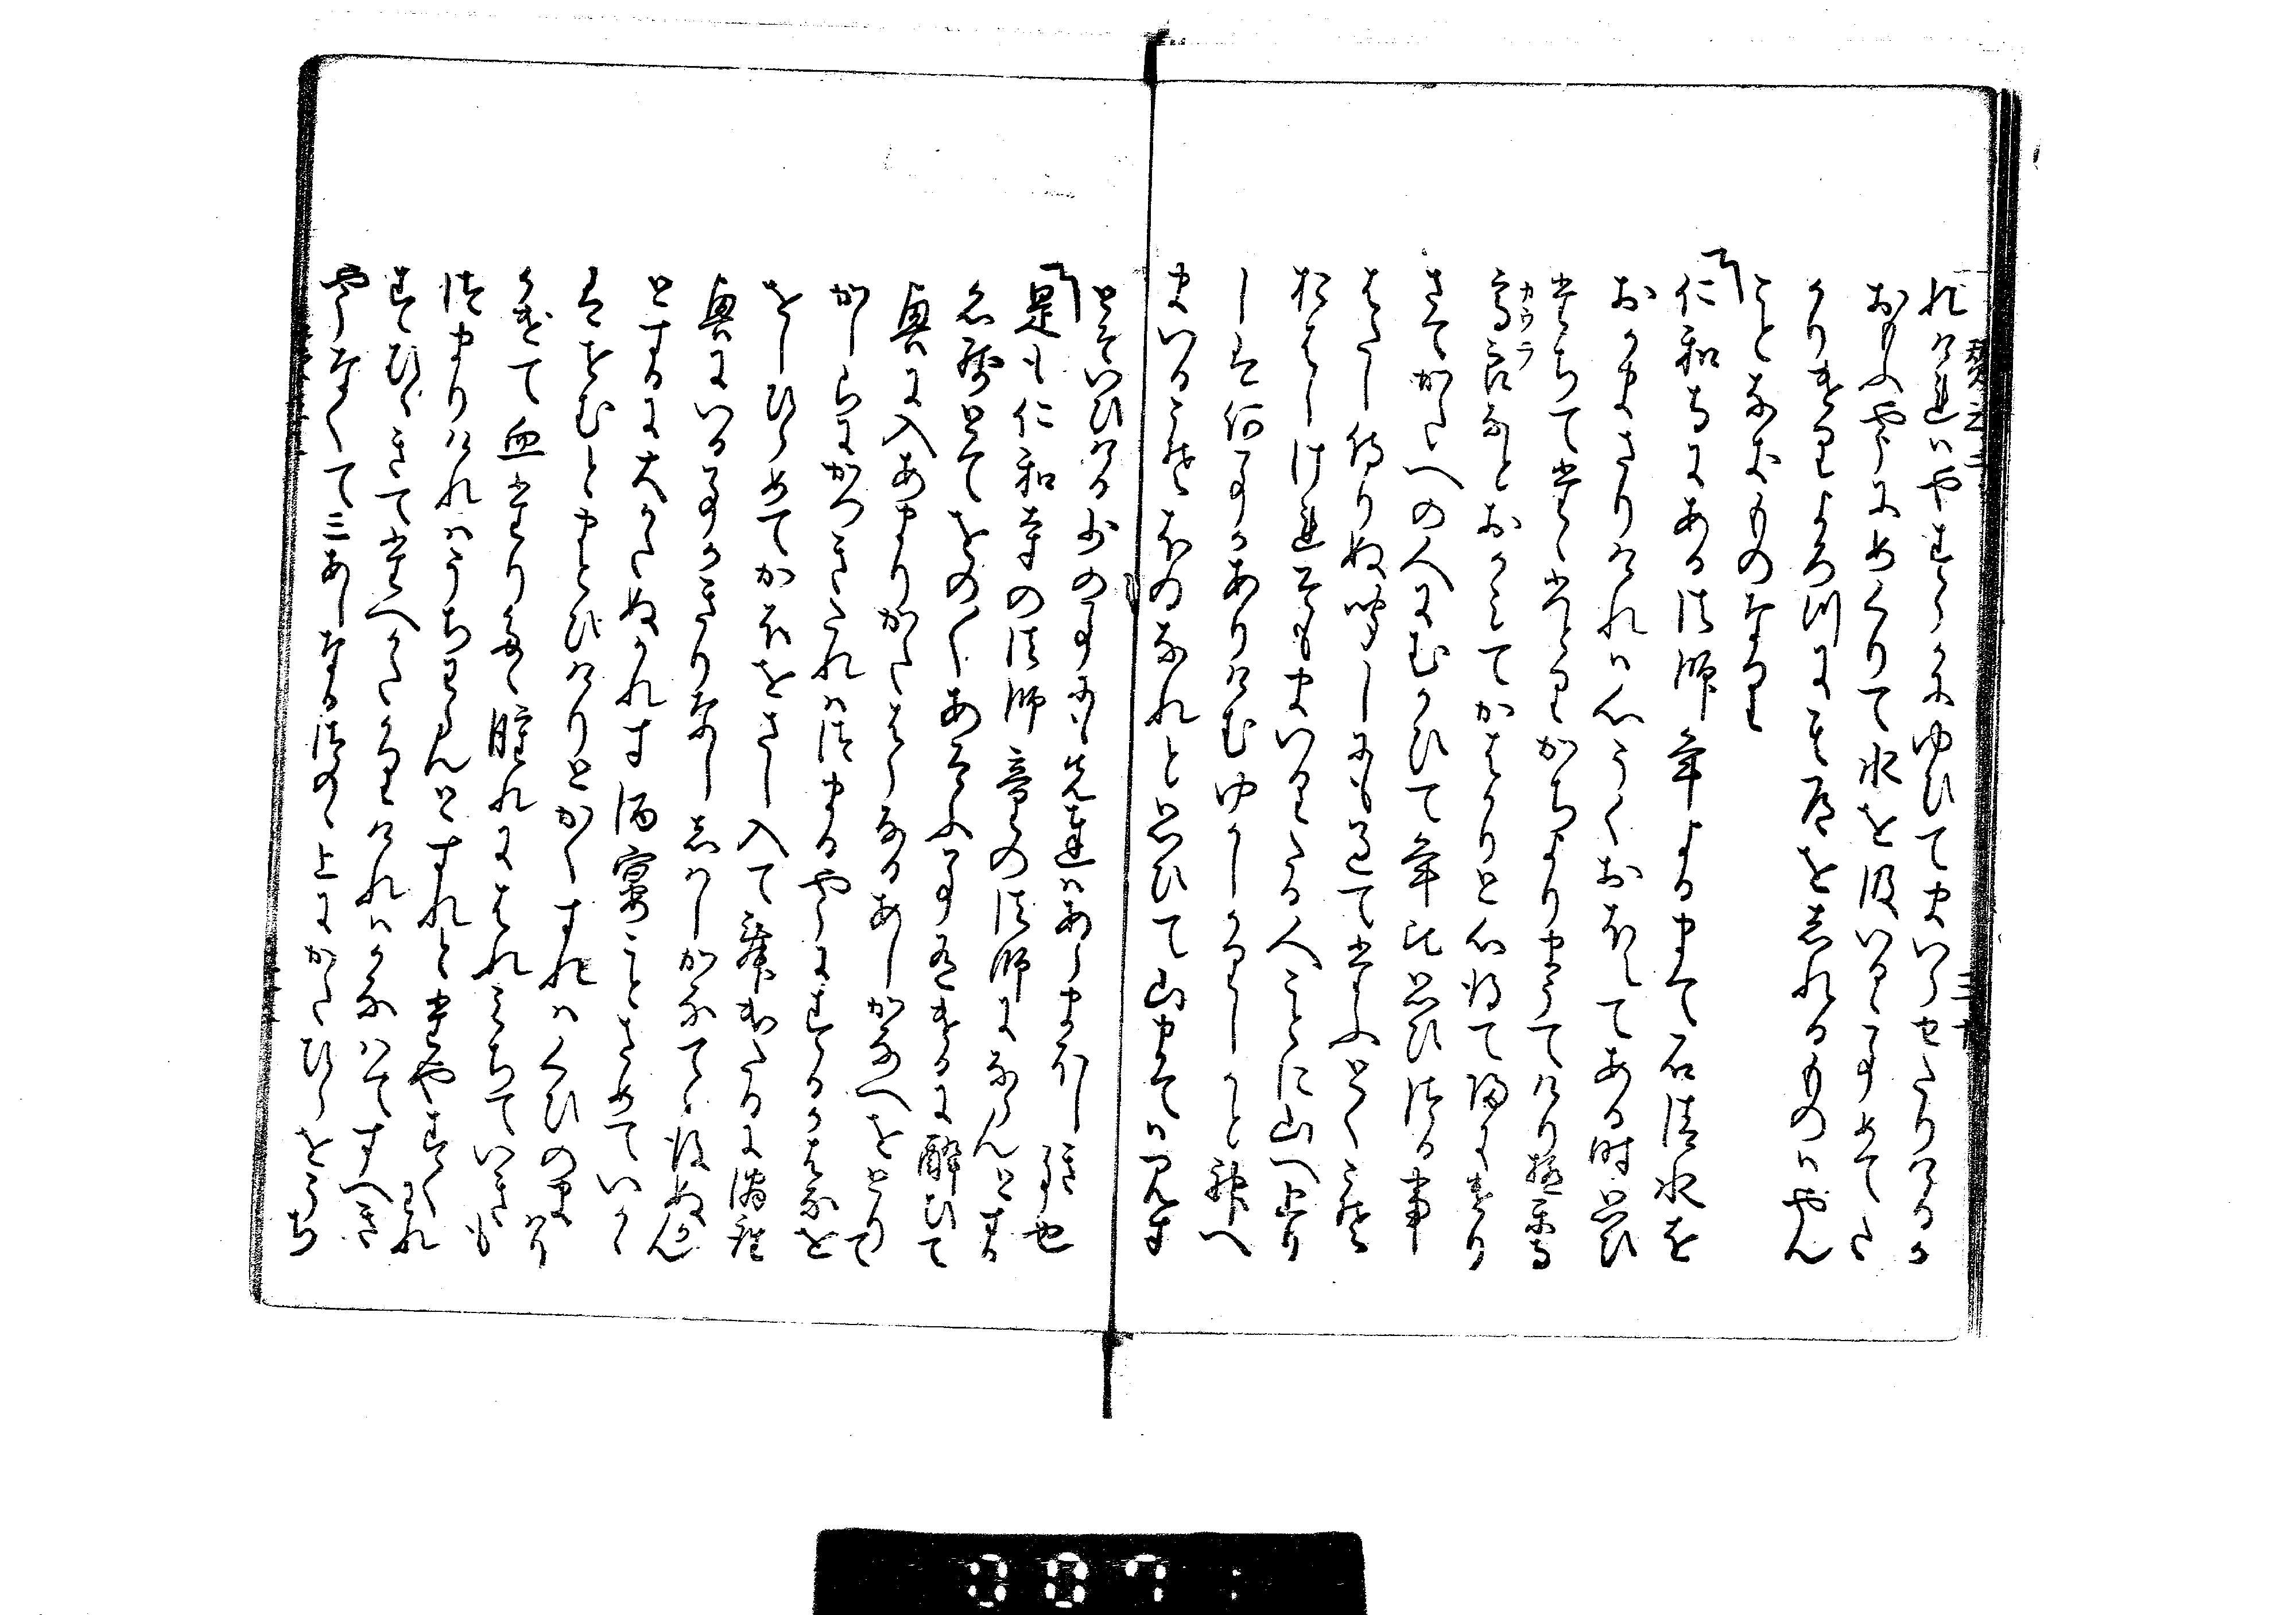 れけ連ハやすらかにゆひてまいらせたりけるか
おもふやうにめくりて水を汲いるゝ事めてた
かりけりよろつに其道をしれるものハやん
ことなきものなり
仁和寺にある法師年よるまて石清水を
おかまさりけれハ心うくおほえてある時思ひ
たちてたゝひとりかちよりまうてけり極楽寺
高良なとおかみてかはかりと心得て帰にけり
カウラ
さてかたへの人にむかひて年比思ひつる事
はたし侍りぬ聞しにも過てたふとくこそ
おはしけれそもまいりたる人ことに山へ上り
しは何事かありけむゆかしかりしかと神へ
まいるこそほいなれと思ひて山まてハ見す
とそいひける少の事にも先達ハあらまほしき事也
是も仁和寺の法師童の法師にならんとする
名残とてをの〱あそふ事有けるに酔ひて
興に入あまりかたはらなるあしかなへをとりて
かしらにかつきたれハつまるやうにするをはなを
をしひらめてかほをさし入て舞出たるに満座
興にいる事かきりなししはしかなてゝ後ぬかん
とするに大かたぬかれす酒宴ことさめていかゝ
はせむとまとひけりとかくすれハくひのまハり
かけて血たりたゝ腫れにはれみちていきも
つまりけれハうちわらんとすれとたやすくわれ
すひゝきてたへかたかりけれハかなハてすへき
やうなくて三あしなる角の上にかたひらをうち